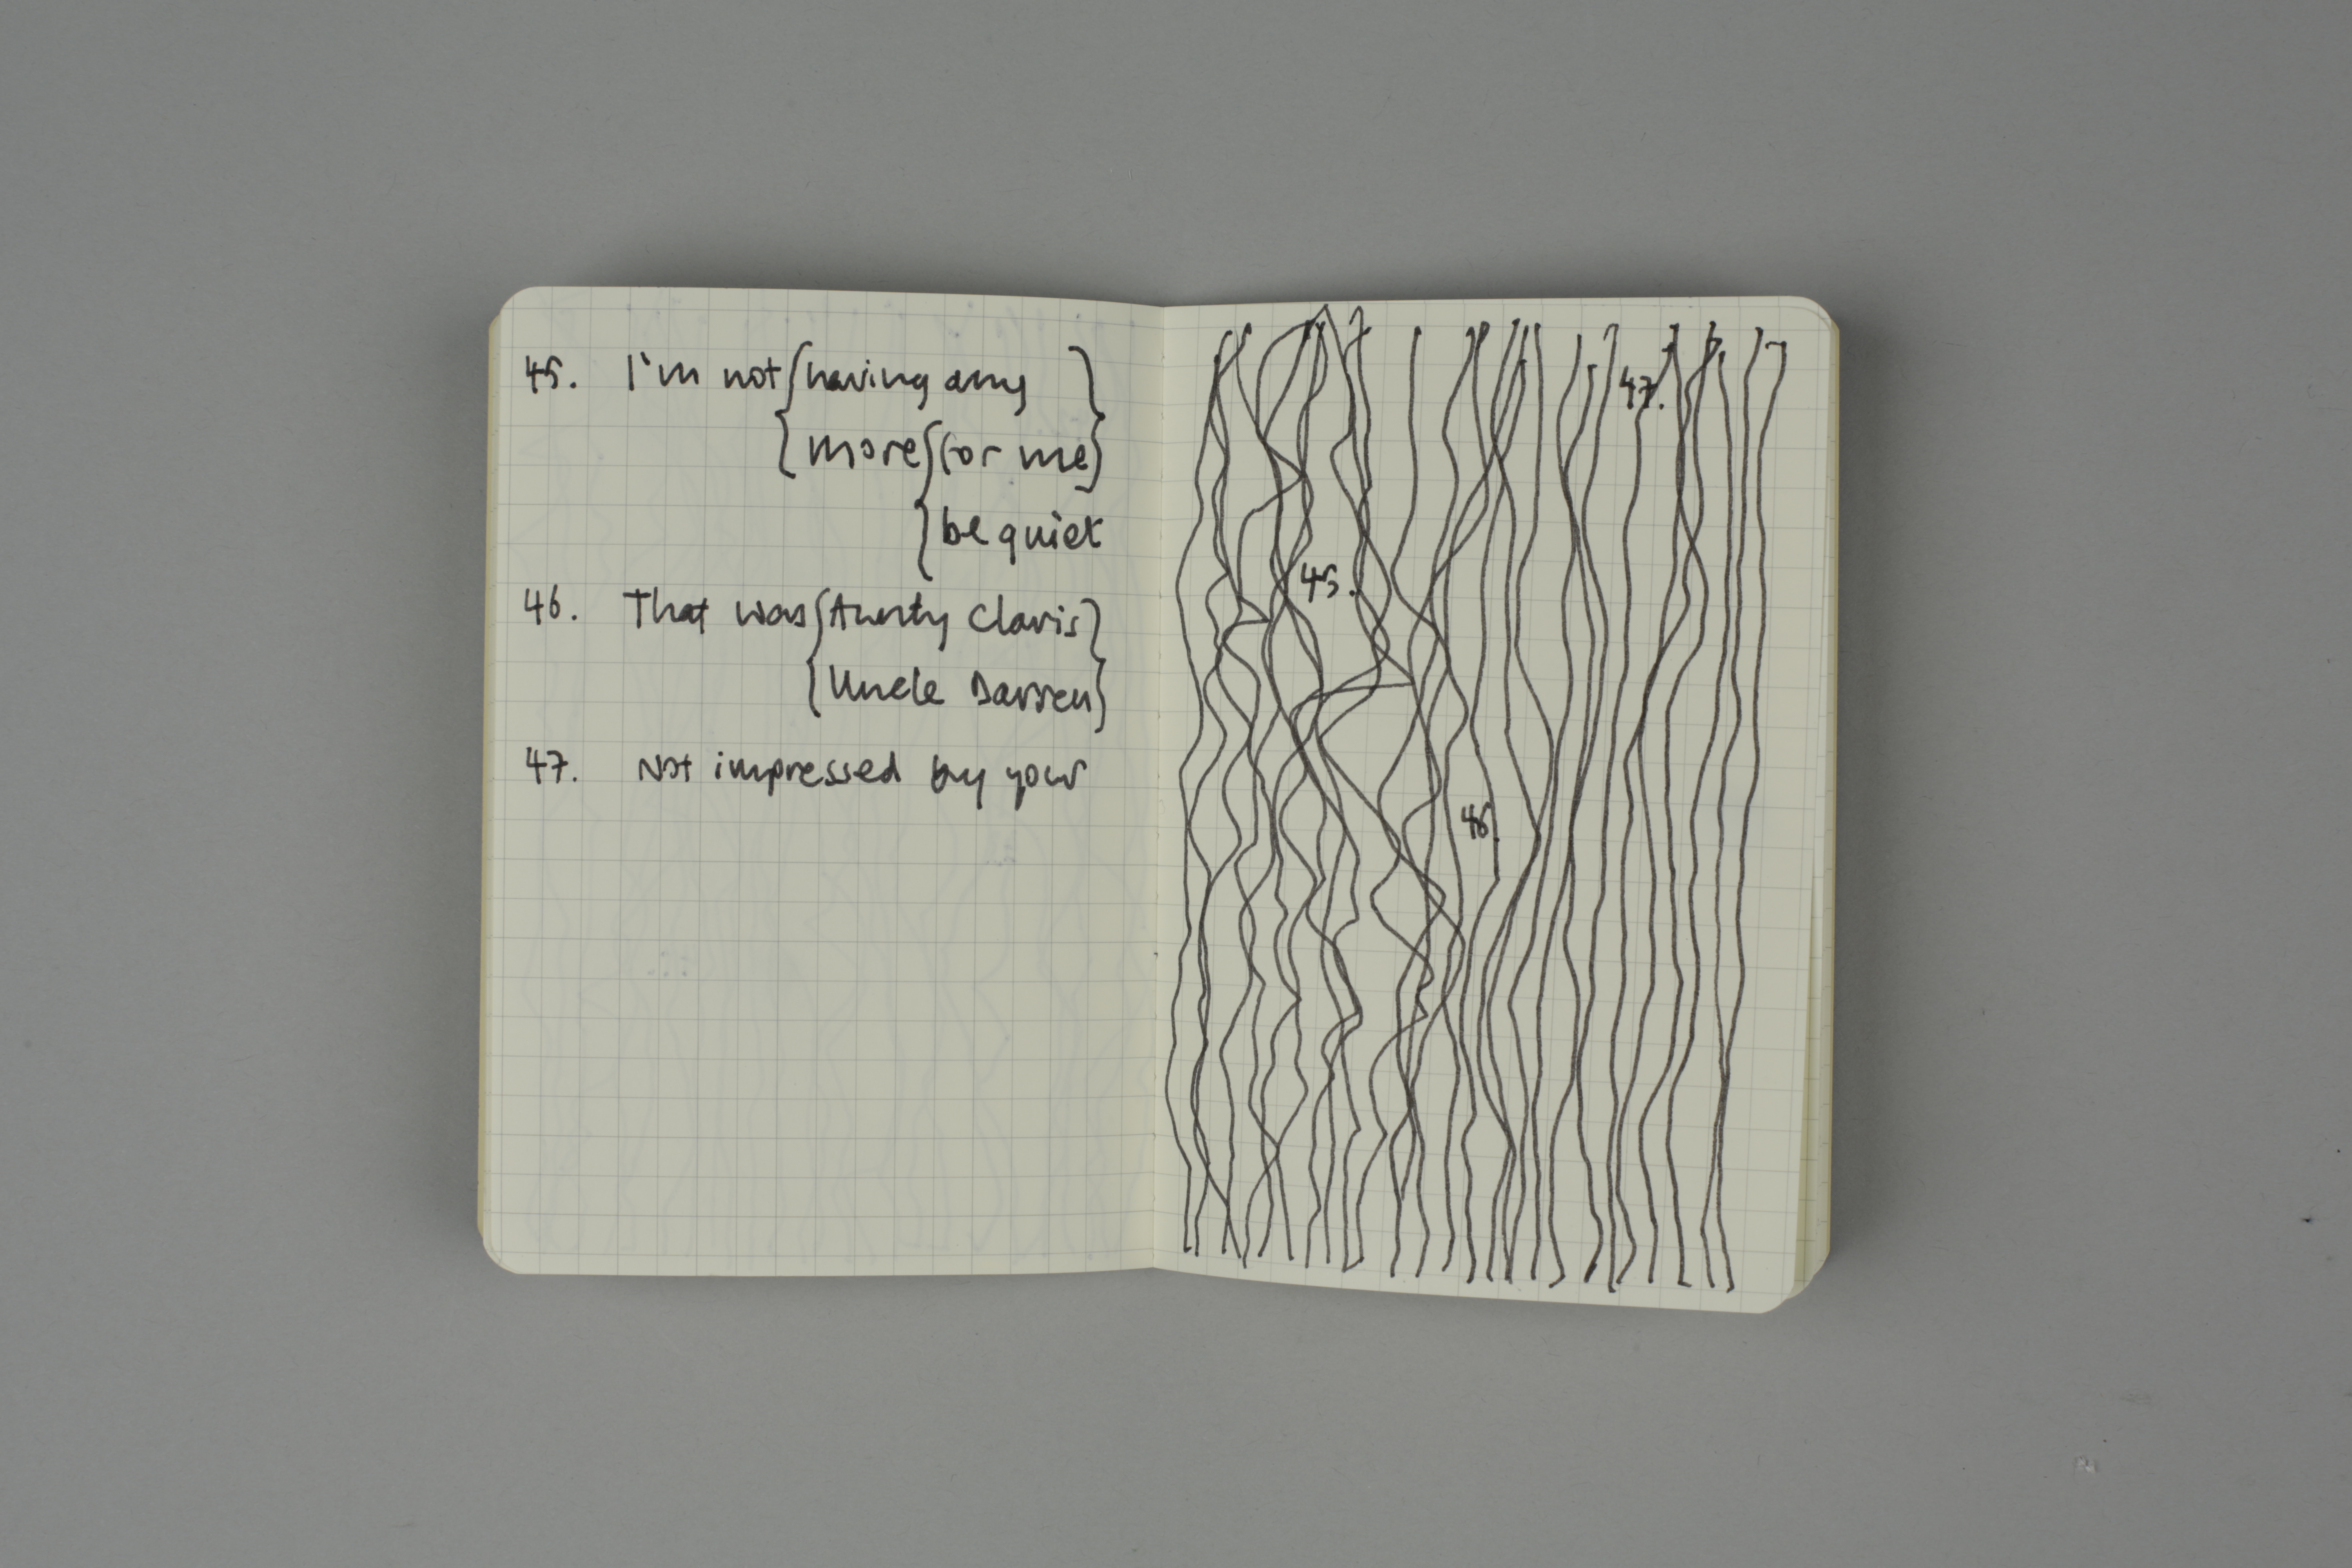 45. I'm not {having any}
{more {(or me)}
{be quiet
46. That was {Aunty Claris}
{Uncle Darren}
47. Not impressed by your
47.
45.
46.